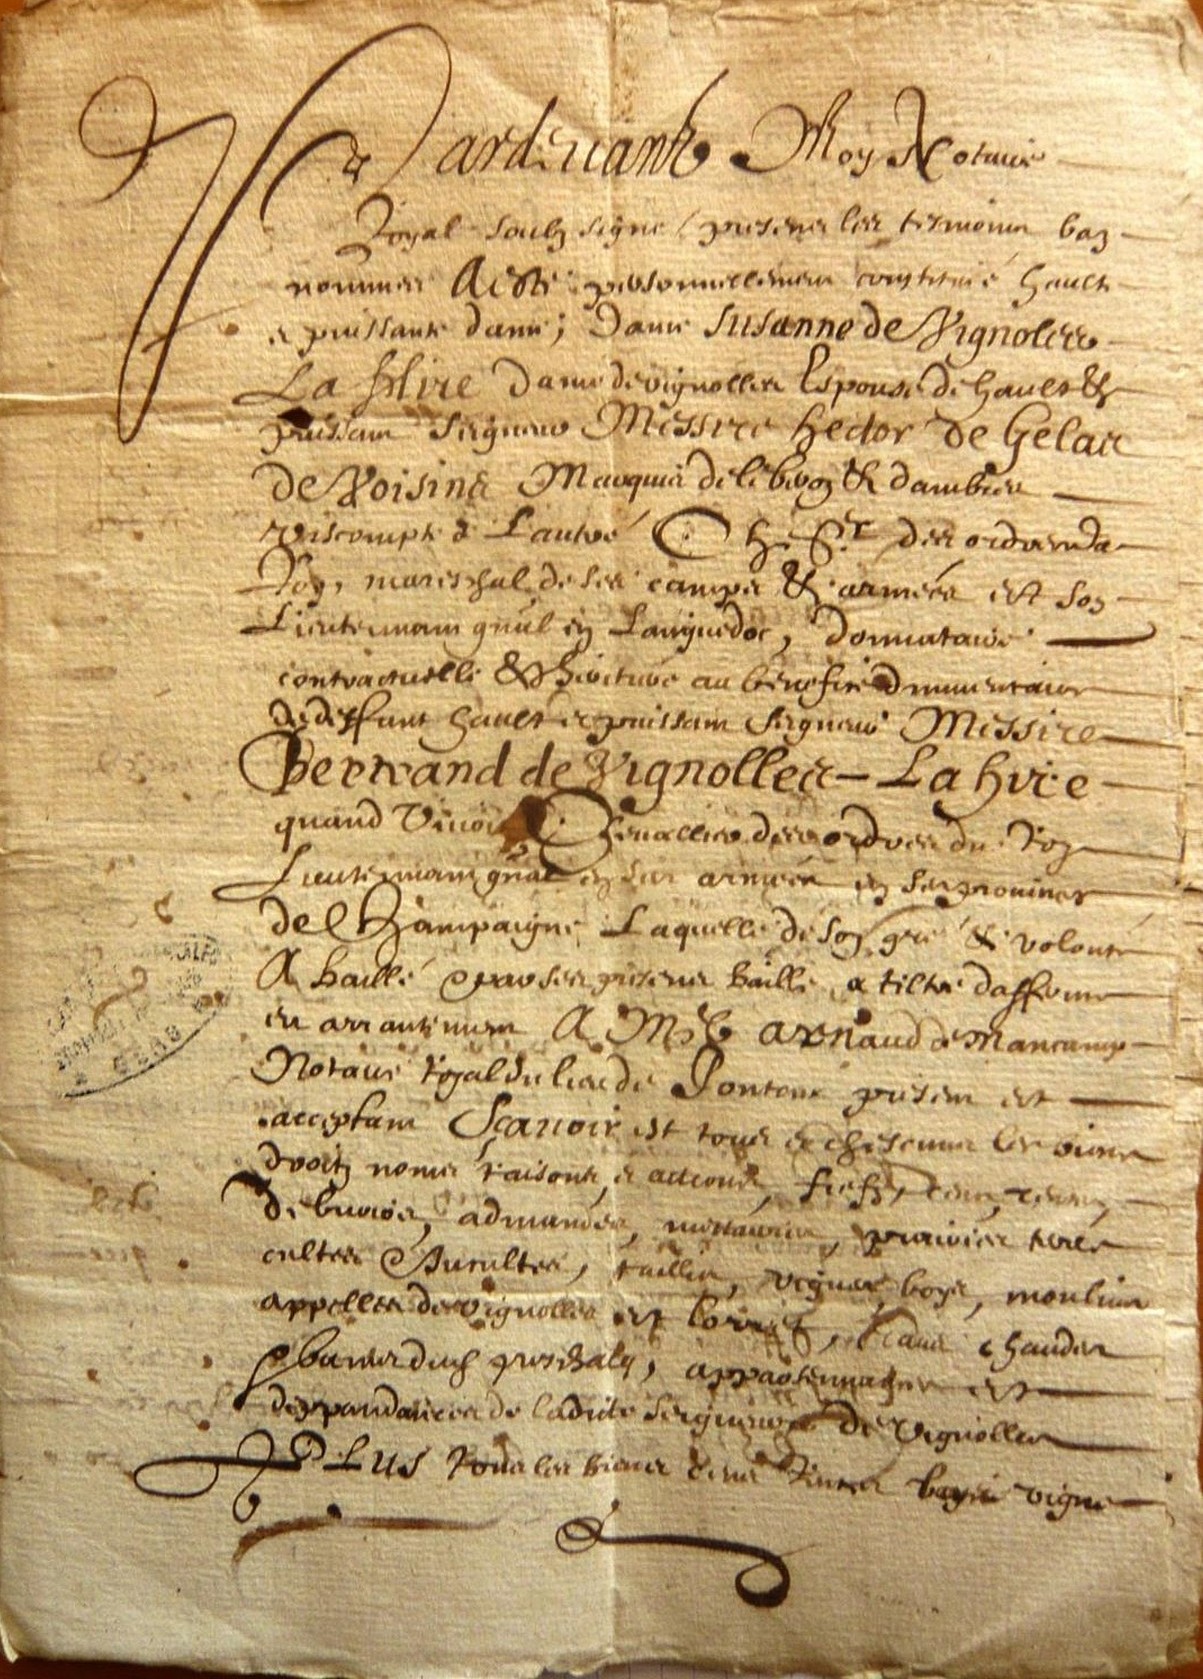 Pardeuant Moy Notaire
Royal soubz signe presens les tesmoins bas
nommes A esté personnellement constituée haulte
et puissante dame; Dame Susanne de Vignolles
La Hire Dame de vignolles Espouse de hault &
puissant Seigneur Messire hector de Gelas
De Voisins Marquis de leberon & dambres
viscompte de Lautré Ch. Des ordres du
Roy, mareschal de ses camps & armées et son
Lieutennant gnal en Languedoc, Donnataire
contractuelle & heritiere au benefice dinventaire
de deffunt hault et puissant Seigneur Messire
Bertrand de Vignolles – La hire
quand Vivoit Chevallier des ordres du Roy
Lieutennant gnal en ses armées en ses provinces
de Champaigne Laquelle de son gré & volonté
A baillé & par ses presens baille a tiltre dafferme
et arrantement A Me arnaud de Mancamp
Notaire royal du lieu de Pontonx presen et
acceptant Scauoir est tous & chescuns les biens
droitz noms raisons et actions, fiefs,
debvoirs, mettairies, prairies terres
cultes & Incultes, taillis, vignes boys, moulins
appelles de vignolles et, chaudes
appartennances et
deppandances de ladite seigneurie de vignolles
PLUS tous les biens vigne